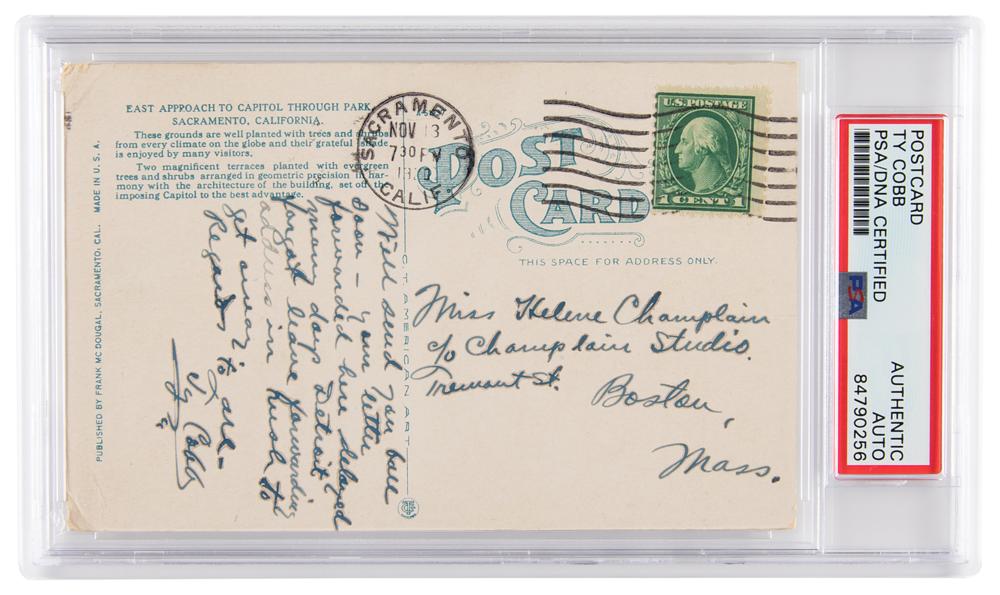 EAST APPROACH TO CAPITOL THROUGH PARK
SACRAMENTO, CALIFORNIA.
These grounds are well planted with trees and shrubs
from every climate on the globe and their grateful shade
is enjoyed by many visitors.
Two magnificent terraces planted with evergreen
trees and shrubs arranged in geometric precision in har-
mony with the architecture of the building, set off the
imposing Capitol to the best advantage.
MADE IN U. S. A.
PUBLISHED BY FRANK MC DOUGAL, SACRAMENTO, CAL.
SACRAMENTO
NOV 13
730 PM
CALIF.
POST
CARD
U.S. POSTAGE
1 CENT 1
THIS SPACE FOR ADDRESS ONLY.
C.T. AMERICAN ART
Will send you ball
soon - your letter
forwarded here delayed
many days Detroit
Forgot leave forwarding
address in rush to
get away
Regards to all -
Ty Cobb
Miss Helene Champlain
c/o Champlain Studio.
Tremont St.
Boston,
Mass.
POSTCARD
TY COBB
PSA/DNA CERTIFIED
PSA
AUTHENTIC
AUTO
84790256